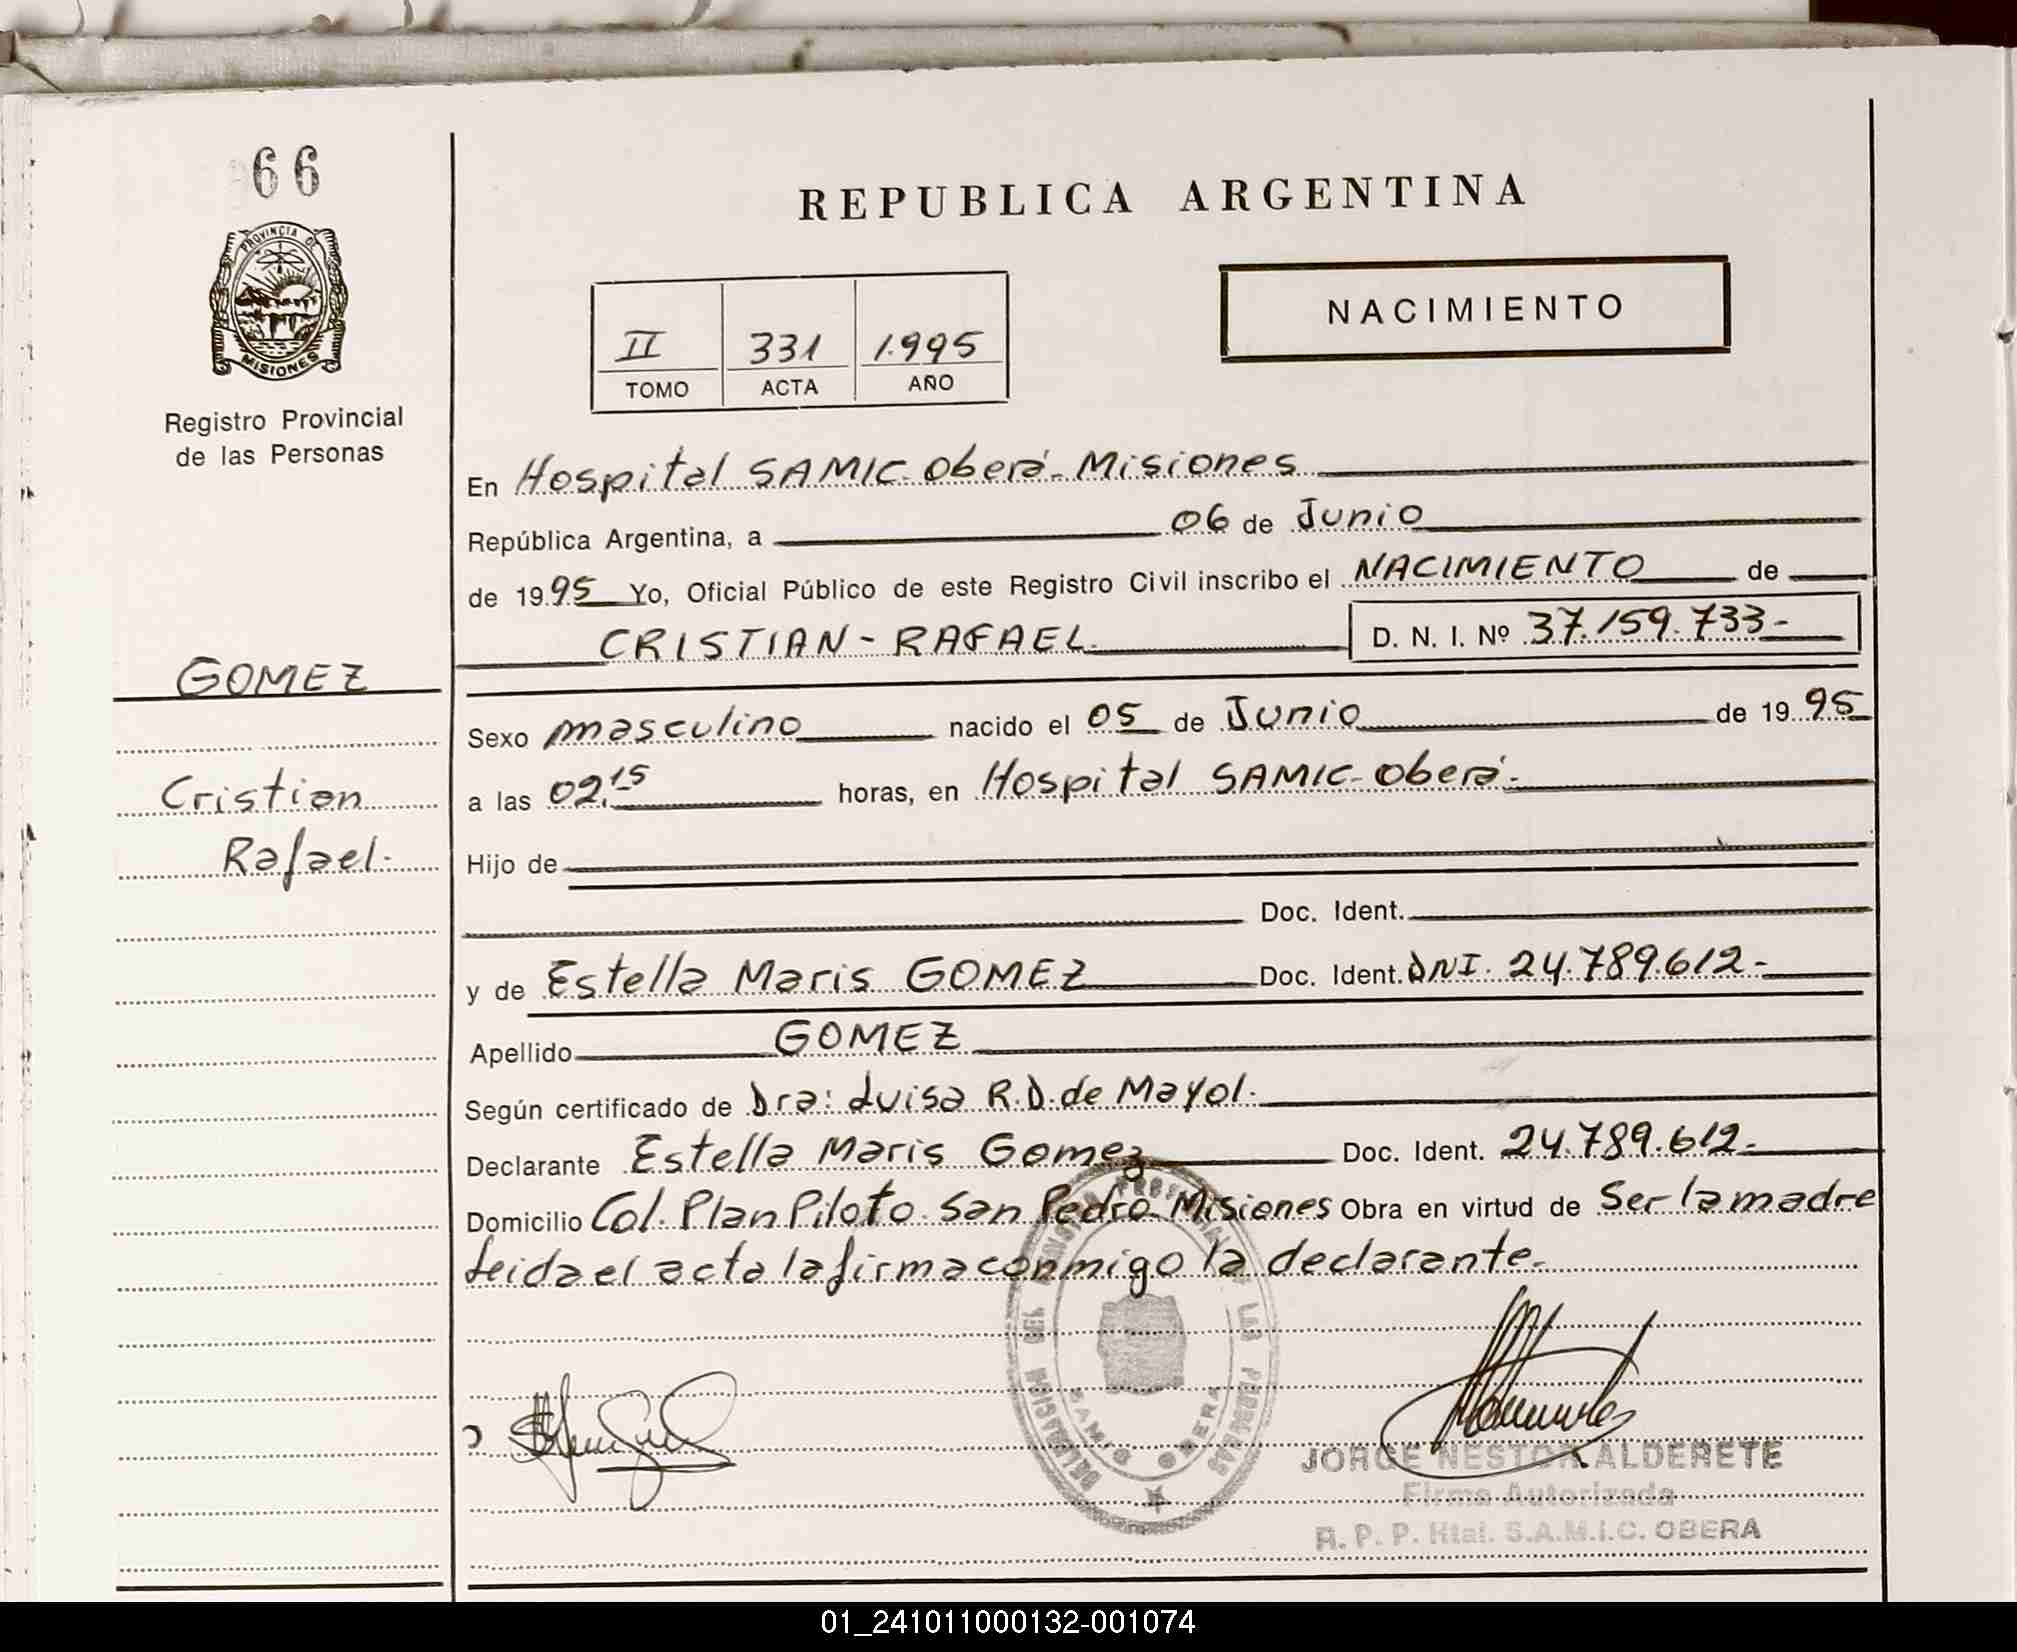 66
PROVINCIA DE
MISIONES
Registro Provincial
de las Personas
GOMEZ
Cristian
Rafael.
REPUBLICA ARGENTINA
II 331 1995
TOMO ACTA AÑO
NACIMIENTO
En Hospital SAMIC-Oberá-Misiones
República Argentina, a 06 de Junio
de 1995 Yo, Oficial Público de este Registro Civil inscribo el NACIMIENTO de
CRISTIAN-RAFAEL. D. N. I. Nº 37.159.733-
Sexo masculino nacido el 05 de Junio de 1995
a las 02,15 horas, en Hospital SAMIC-Oberá-
Hijo de
Doc. Ident.
y de Estella Maris GOMEZ Doc. Ident. DNI. 24.789.612-
Apellido GOMEZ
Según certificado de Dra: Luisa R.D. de Mayol.
Declarante Estella Maris Gomez Doc. Ident. 24.789.612-
Domicilio Col. Plan Piloto. San Pedro-Misiones Obra en virtud de Ser la madre
Leida el acta la firma conmigo la declarante-
SAMIC OBERA
JORGE NESTOR ALDERETE
Firma Autorizada
R. P. P. Htal. S.A.M.I.C. OBERA
01_241011000132-001074